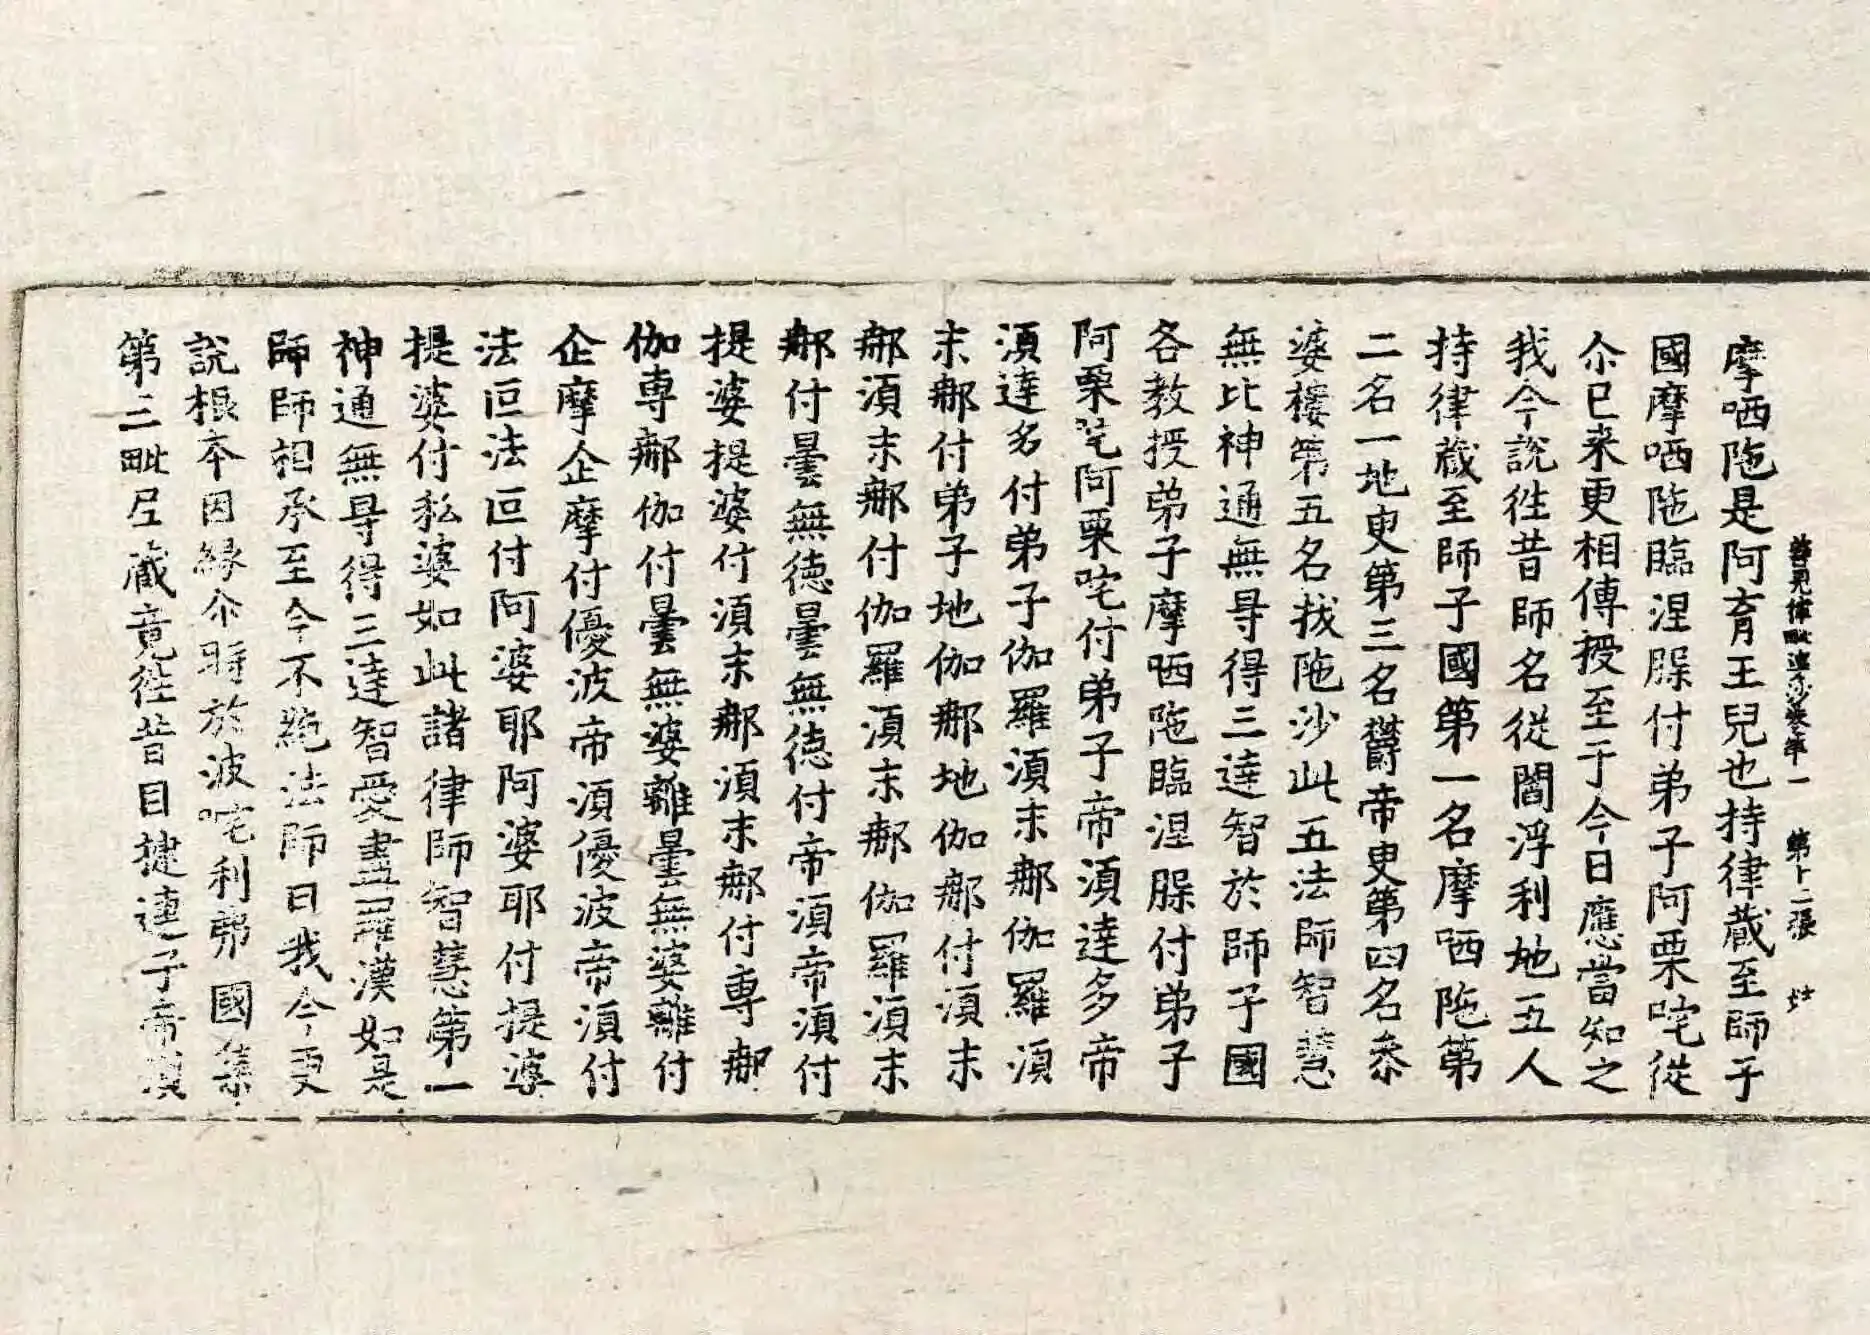 摩哂陁是阿育王兒也持律藏至師子
善見律毗婆沙卷第一 第十二張
國摩哂陁臨涅脵付弟子阿栗咤從
尒已来更相傳授至于今日應當知之
我今說徃昔師名從閻浮利地五人
持律藏至師子國第一名摩哂陁第
二名一地叟第三名欝帝叟第四名叅
婆樓第五名拔陁沙此五法師智慧
無比神通無㝵得三達智於師子國
各教授弟子摩哂陁臨涅脵付弟子
阿栗咤阿栗咤付弟子帝湏達多帝
湏達多付弟子伽羅湏末𨚗伽羅湏
末𨚗付弟子地伽𨚗地伽𨚗付湏末
𨚗湏末𨚗付伽羅湏末𨚗伽羅湏末
𨚗付曇無徳曇無徳付帝湏帝湏付
提婆提婆付湏末𨚗湏末𨚗付專𨚗
伽專𨚗伽付曇無婆離曇無婆離付
企摩企摩付優波帝湏優波帝湏付
法叵法叵付阿婆耶阿婆耶付提婆
提婆付私婆如此諸律師智慧第一
神通無㝵得三達智愛盡羅漢如是
師師相承至今不絶法師曰我今更
說根夲因縁尒時於波咤利弗國集
第三毗尼藏竟徃昔目揵連子帝湏